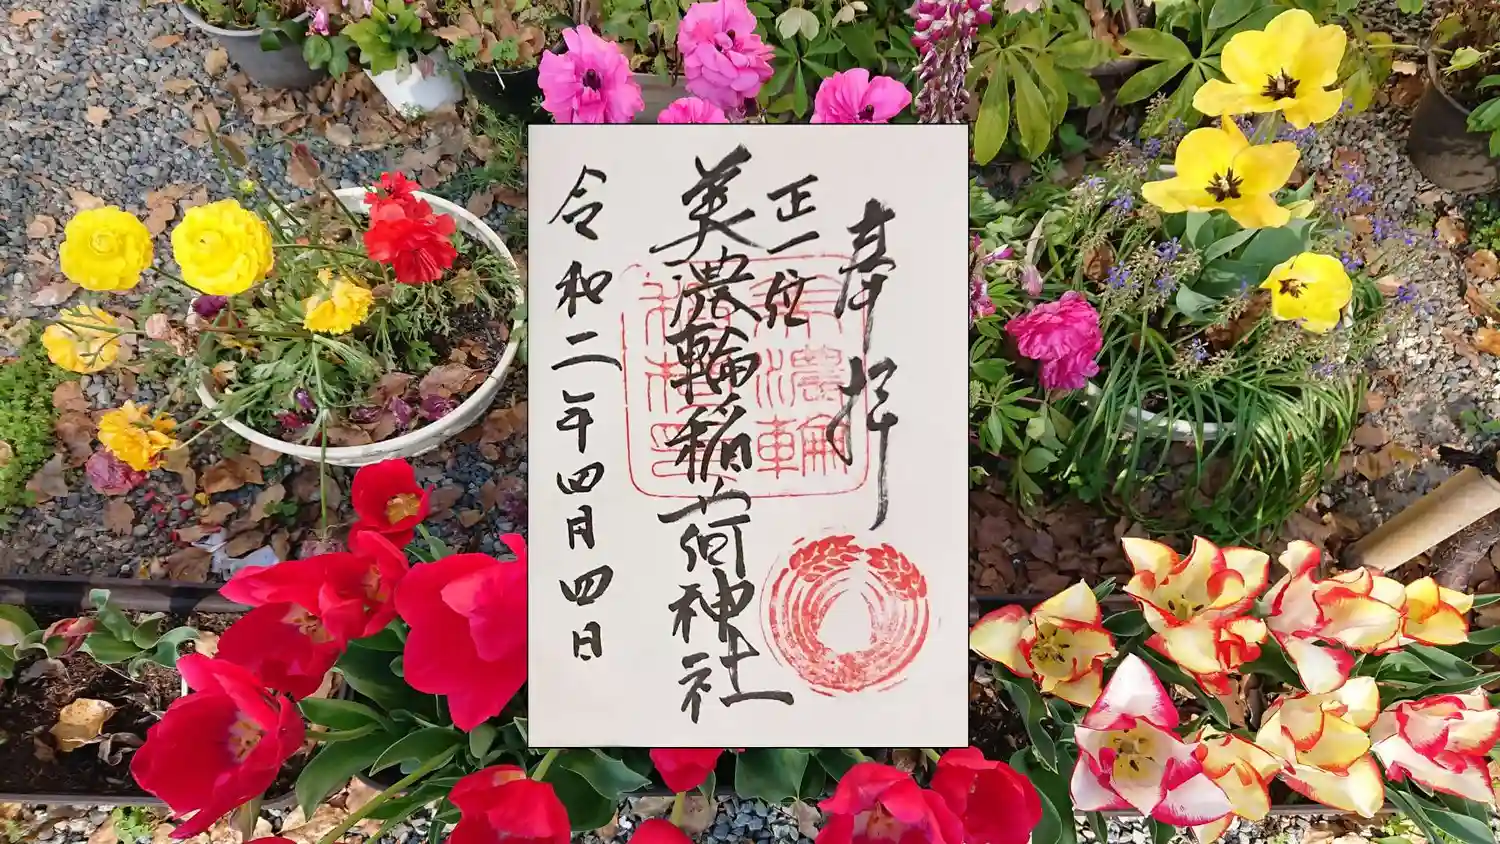 奉拝
正一位
美濃輪稲荷神社
美濃輪
稲荷神社
令和二年四月四日